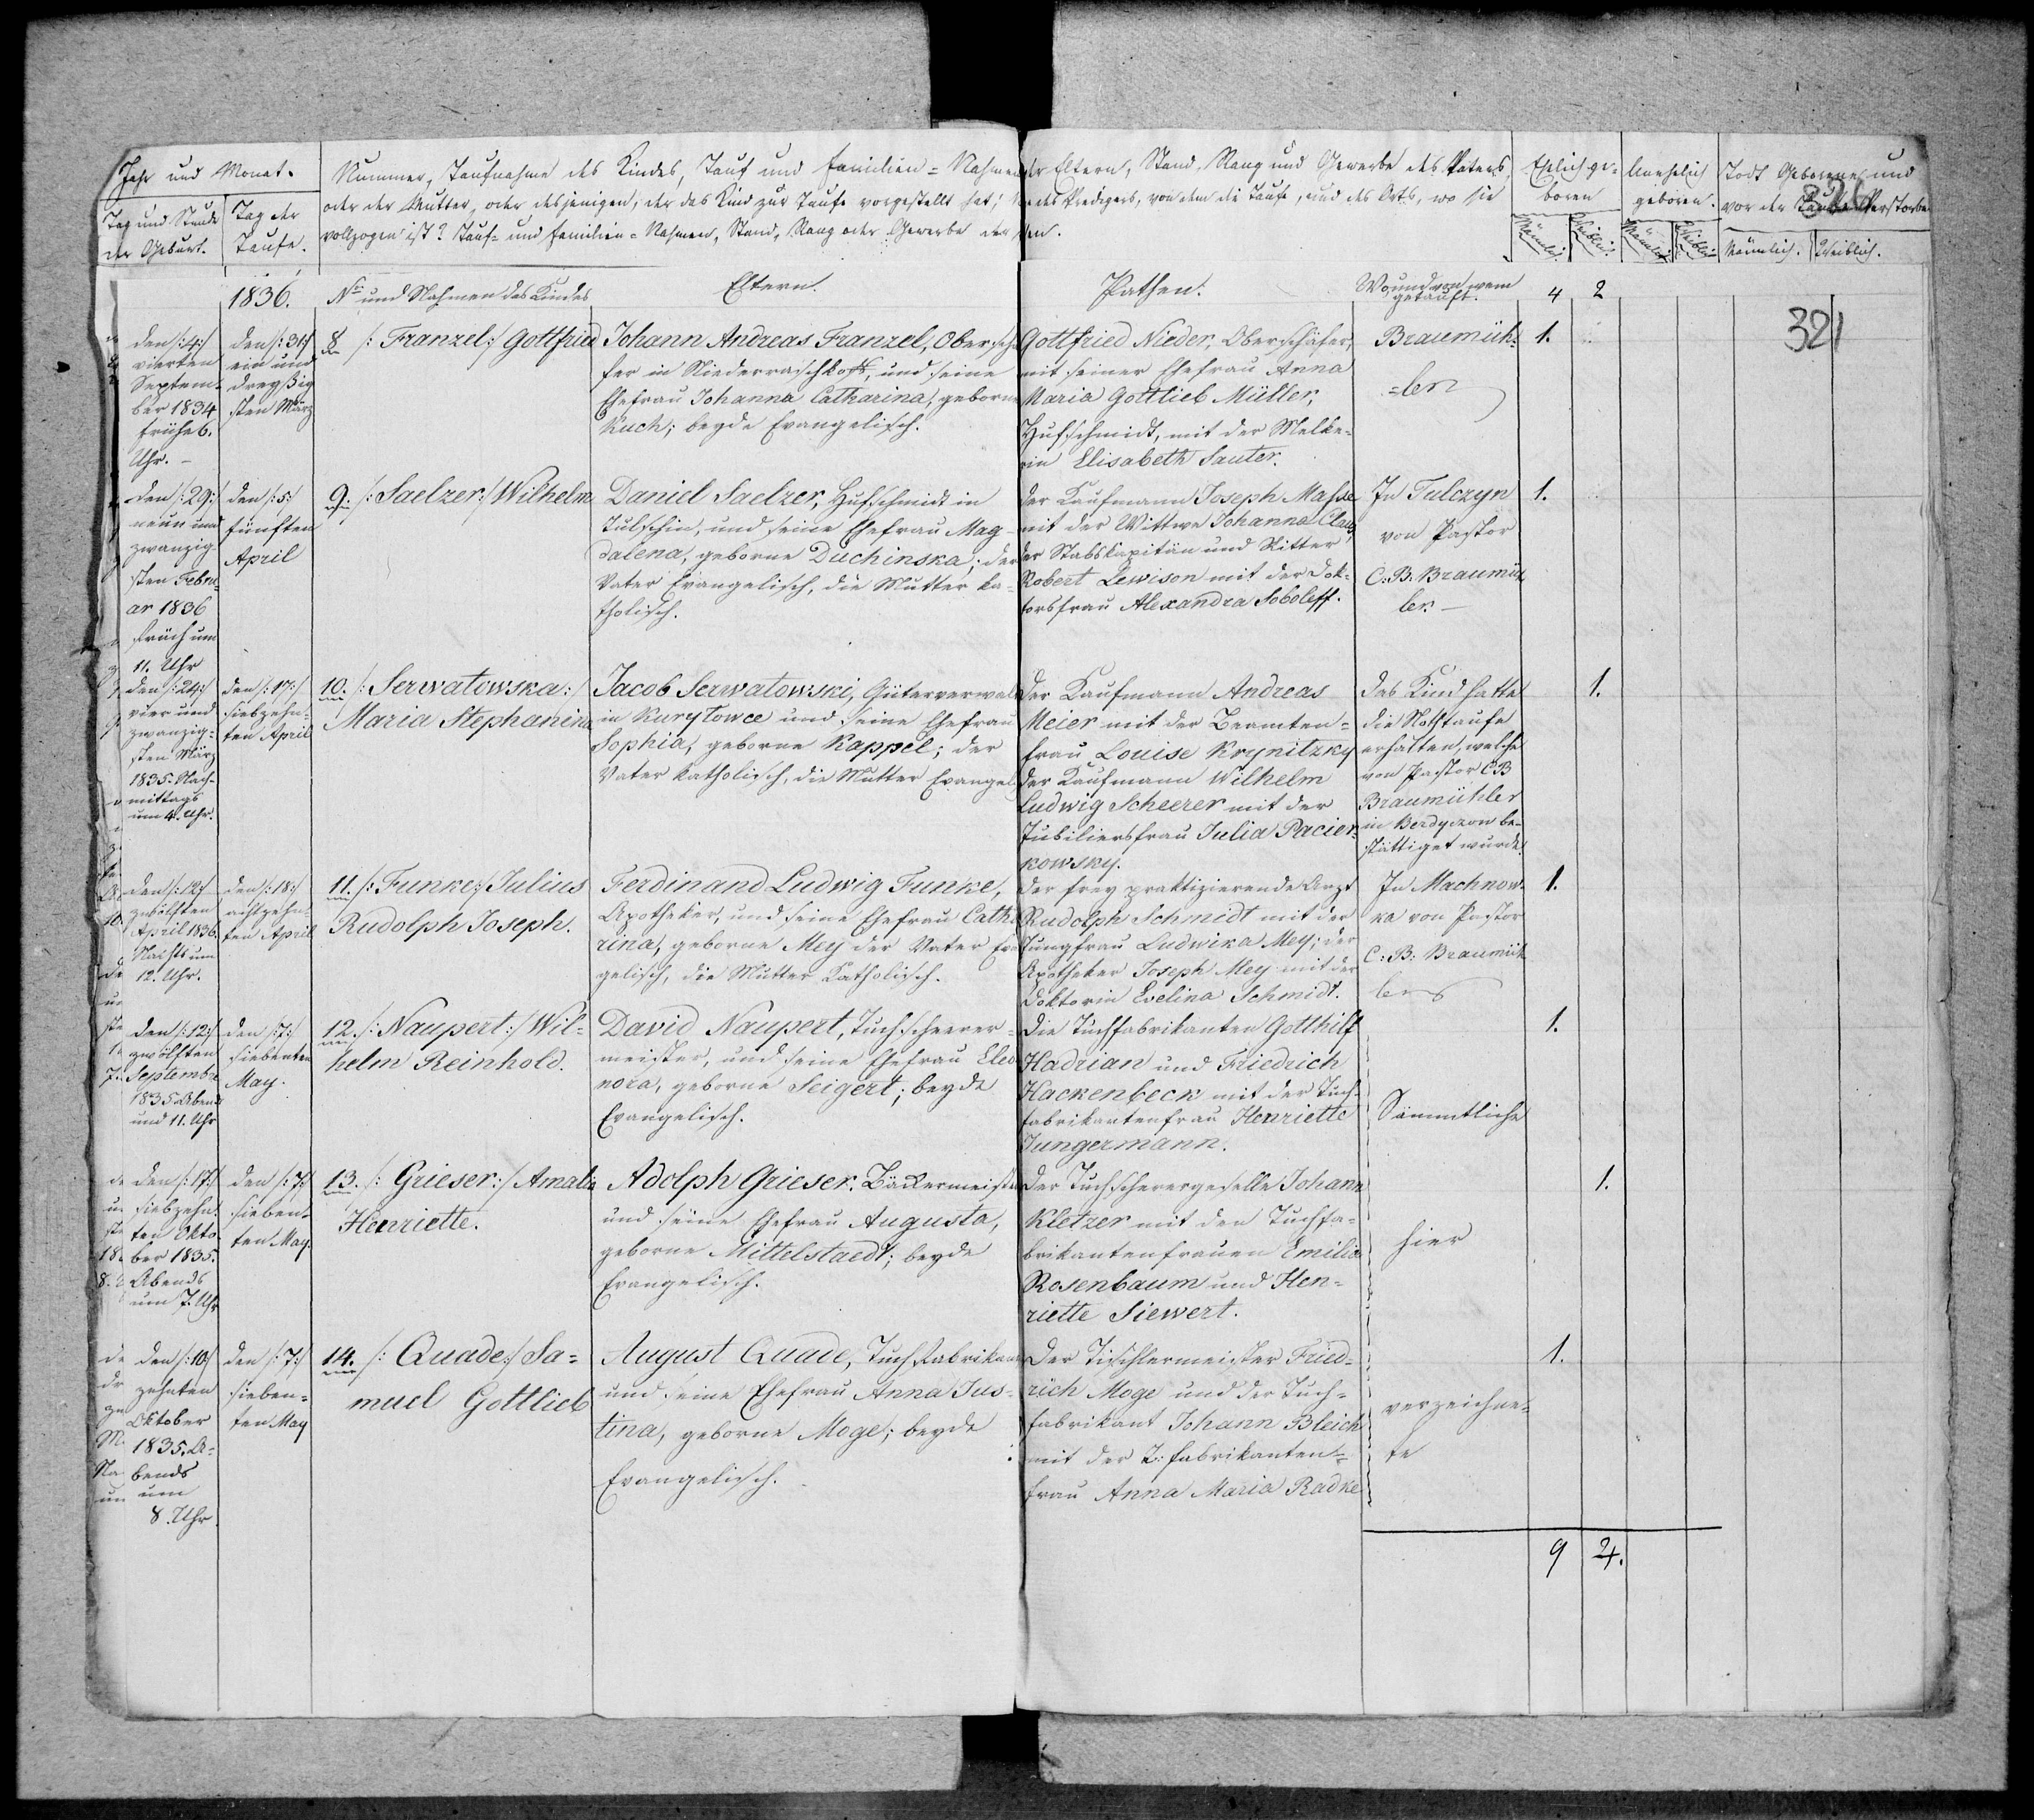 Jahr und Monat.
Tag und Stunde
der Geburt.
Tag der
Taufe.
Nummer, Taufnahme des Kindes, Tauf und Familien=Nahmen der Eltern, Stand, Rang und Gewerbe des Vaters,
oder der Mutter, oder desjenigen, der das Kind zur Taufe vorgestellt hat; des Predigers, von dem die Taufe, und des Orts, wo sie
vollzogen ist? Tauf= und Familien=Nahmen, Stand, Rang oder Gewerbe der
Ehelich ge-
boren
Unehelich
geboren.
Todt Geborene und
vor der Taufe Verstorbe
Männlich. Weiblich.
326
1836.
No und Nahmen des Kindes
Eltern.
Pathen.
Wo und von wem
getauft.
4 2
321
den /:4:/
vierten
Septem-
ber 1834
Frühe 6.
Uhr.
den /:31:/
ein und
dreyßig
sten März
8 /: Franzel :/ Gottfried
Johann Andreas Franzel, Oberschä
fer in Niederraschkoff, und seine
Ehefrau Johanna Catharina, geborne
Kuch; beyde Evangelisch.
Gottfried Nieder, Oberschäfer,
mit seiner Ehefrau Anna
Maria Gottlieb Müller,
Hufschmidt, mit der Melke-
rin Elisabeth Sauter.
Braumüh-
=ler
1.
den /:29:/
neun und
zwanzig-
sten Febru-
ar 1836
früh um
11. Uhr
den /:5:/
fünften
April
9. /: Saelzer :/ Wilhelm
Daniel Saelzer, Hufschmidt in
Tulschin, und seine Ehefrau Mag-
dalena, geborne Duchinska; der
Vater Evangelisch, die Mutter ka-
tholisch.
der Kaufmann Joseph Masse
mit der Wittwe Johanna Claus,
der Stabskapitän und Ritter
Robert Lewison mit der Dok-
torsfrau Alexandra Soboleff.
In Tulczyn
von Pastor
C: B: Braumüh
ler.
1.
den /:24:/
vier und
zwanzig-
sten März
1835. Nach-
mittags
um 4. Uhr.
den /:17:/
siebzehn-
ten April
10. /: Serwatowska :/
Maria Stephanina
Jacob Serwatowski, Güterverwal
in Kurytowce und seine Ehefrau
Sophia, geborne Kappel; der
Vater katholisch, die Mutter Evangel
Der Kaufmann Andreas
Meier mit der Beamten-
frau Louise Krynitzky
der Kaufmann Wilhelm
Ludwig Scheerer mit der
Jubiliersfrau Julia Pacier-
kowsky.
Das Kind hatte
die Nothtaufe
erhalten, welche
von Pastor C B
Braumühler
in Berdyczow be-
stättiget wurde.
1.
den /:12:/
zwölften
April 1836.
Nachts um
12. Uhr.
den /:18:/
achtzehn-
ten April
11. /: Funke :/ Julius
Rudolph Joseph.
Ferdinand Ludwig Funke,
Apotheker, und seine Ehefrau Catha
rina, geborne Mey der Vater Evan
gelisch, die Mutter Katholisch.
der frey praktizierende Arzt
Rudolph Schmidt mit der
Jungfrau Ludwika Mey; der
Apotheker Joseph Mey mit der
Doktorin Evelina Schmidt.
In Machnow-
ka von Pastor
C: B: Braumüh
ler
1.
den /:12:/
zwölften
Septembr
1835 Abends
und 11. Uhr
den /:7:/
siebenten
May.
12. /: Naupert :/ Wil-
helm Reinhold.
David Naupert, Tuchscheerer-
meister, und seine Ehefrau Eleo
nora, geborne Seigert; beyde
Evangelisch.
die Tuchfabrikanten Gotthilf
Hadrian und Friedrich
Hackenbeck mit der Tuch-
fabrikantenfrau Henriette
Jungermann.
Sämmtliche
1.
den /:17:/
siebzehn-
ten Okto-
ber 1835.
Abends
um 7. Uhr
den /:7:/
sieben-
ten May.
13. /: Grieser :/ Amalia
Henriette.
Adolph Grieser. Bäckermeister
und seine Ehefrau Augusta,
geborne Mittelstaedt; beyde
Evangelisch.
der Tuchscherergeselle Johann
Kletzer mit den Tuchfa-
brikantenfrauen Emilia
Rosenbaum und Hen-
riette Siewert.
hier
1.
den /:10:/
zehnten
Oktober
1835. A-
bends
um
8. Uhr.
den /:7:/
sieben-
ten May
14. /: Quade :/ Sa-
muel Gottlieb
August Quade, Tuchfabrikant
und seine Ehefrau Anna Jus-
tina, geborne Moge; beyde
Evangelisch.
Der Tischlermeister Fried-
rich Moge und der Tuch-
fabrikant Johann Bleich
mit der T: fabrikanten-
frau Anna Maria Radke
verzeichne-
te
1.
9 4.